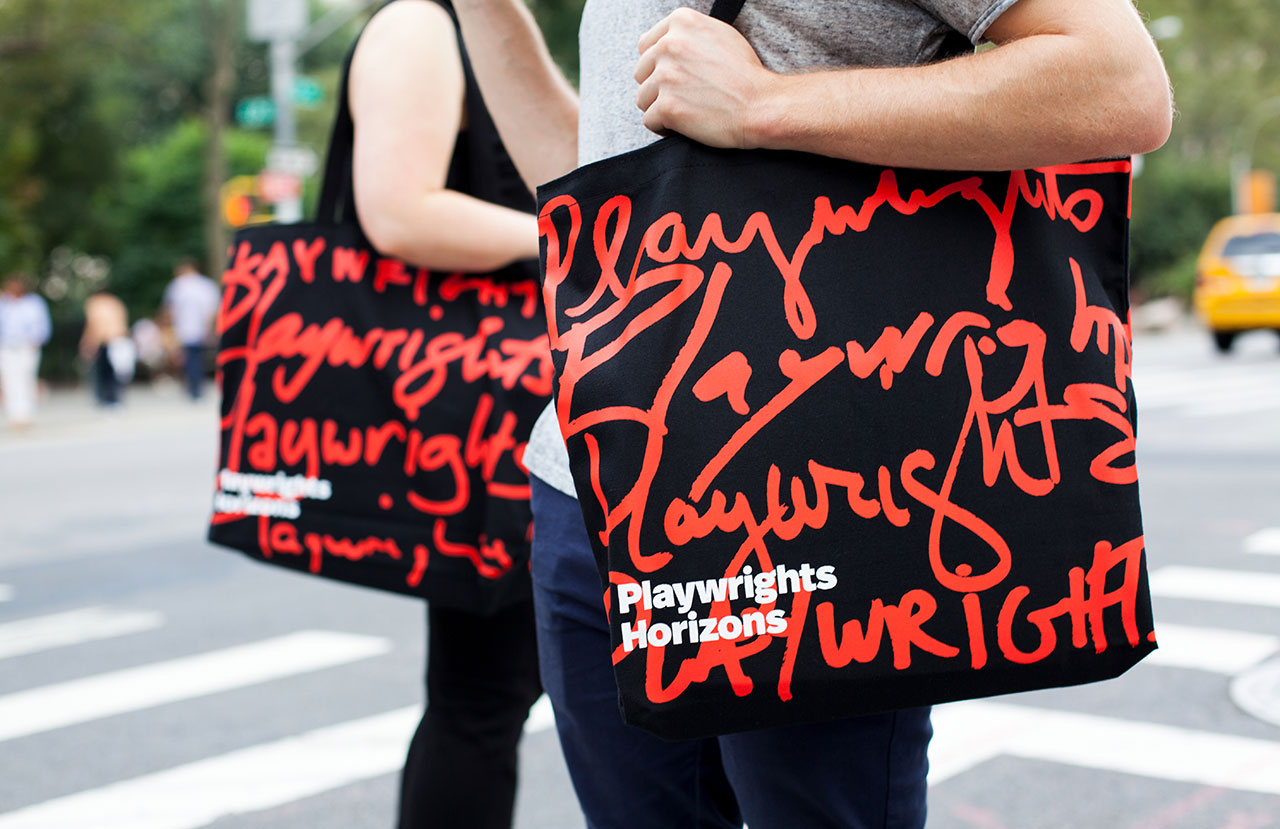 PLAYWRIGH
Playwrights
Playwrights
Playwrights
Horizons
Playwrights
Playwrights
Playwrights
Playwrights
Horizons
PLAYWRIGHT